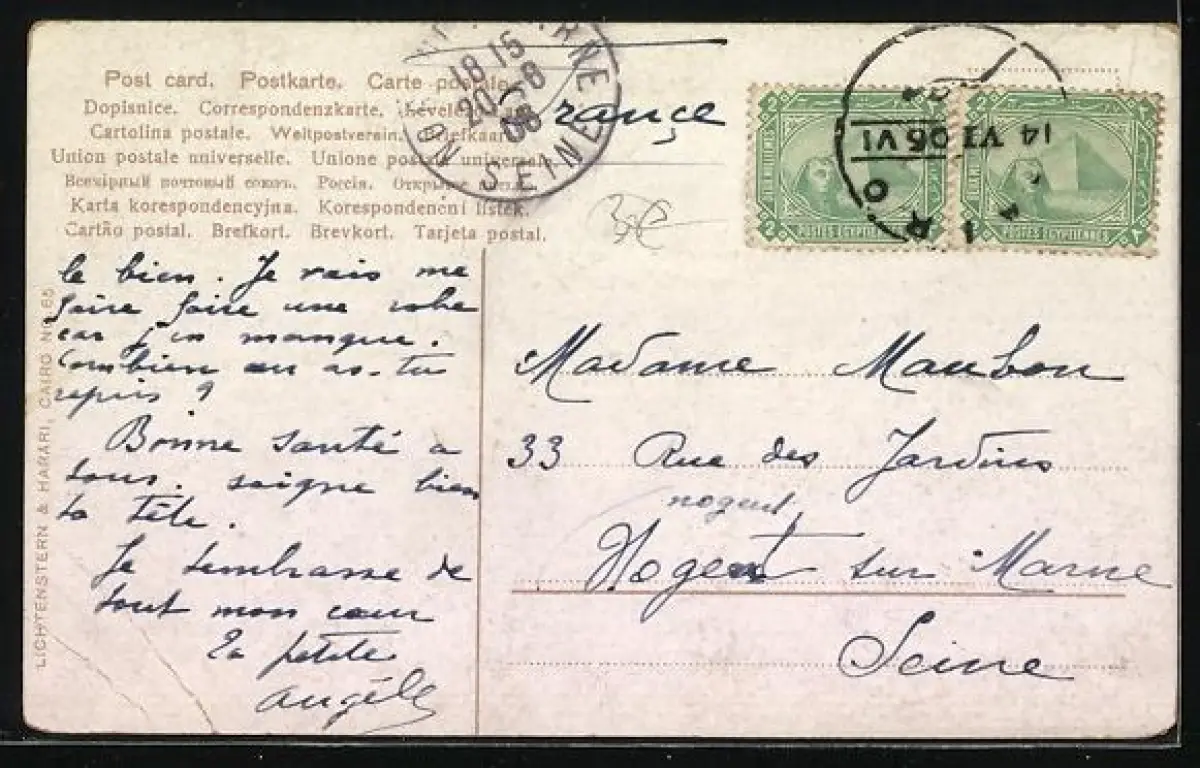 Post card. Postkarte. Carte postale.
Dopisnice. Correspondenzkarte. Levelező
Cartolina postale. Weltpostverein. Briefkaart
Union postale universelle. Unione postale universale.
Всемірный почтовый союзъ. Россія. Открытое
Karta korespondencyjna. Korespondenční lístek.
Cartão postal. Brefkort. Brevkort. Tarjeta postal.
SEINE
18 15
20
08
France
POSTES EGYPTIENNES
POSTES EGYPTIENNES
14 VI 06 VI
le bien. Je vais me
faire faire une robe
car j'en manque.
Combien en as-tu
repris ?
Bonne santé a
tous. soigne bien
ta tête.
Je t'embrasse de
tout mon cœur
Ta petite
Angèle
LICHTENSTERN & HARARI, CAIRO No. 65
Madame Maubon
33 Rue des Jardins
nogent
Nogent sur Marne
Seine